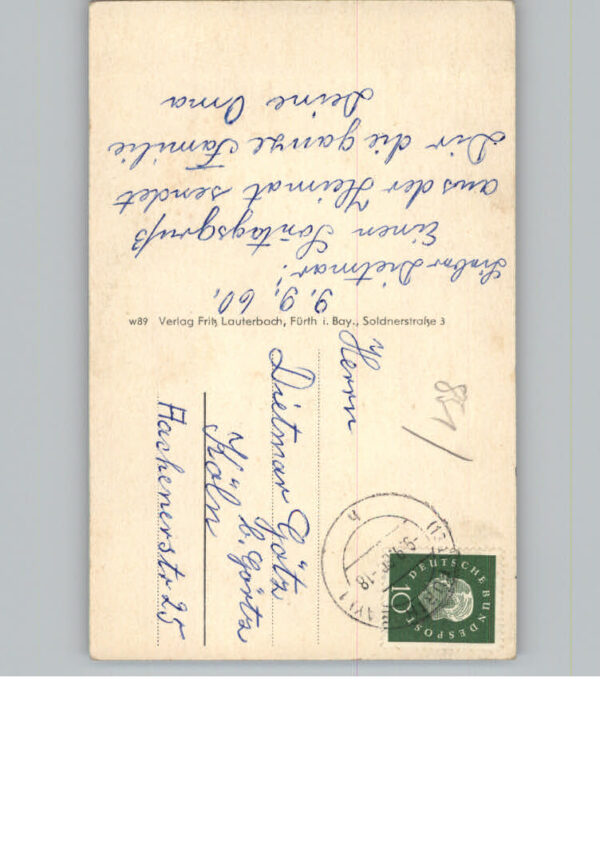 9.9.60.
Lieber Dietmar!
Einen Sontagsgruß
aus der Heimat sendet
Dir die ganze Familie
Deine Oma
w89 Verlag Fritz Lauterbach, Fürth i. Bay., Soldnerstraße 3
Herrn
Dietmar Götz
b. Görtz
Köln
Aachenerstr 25
851
DEUTSCHE BUNDESPOST
10
-18